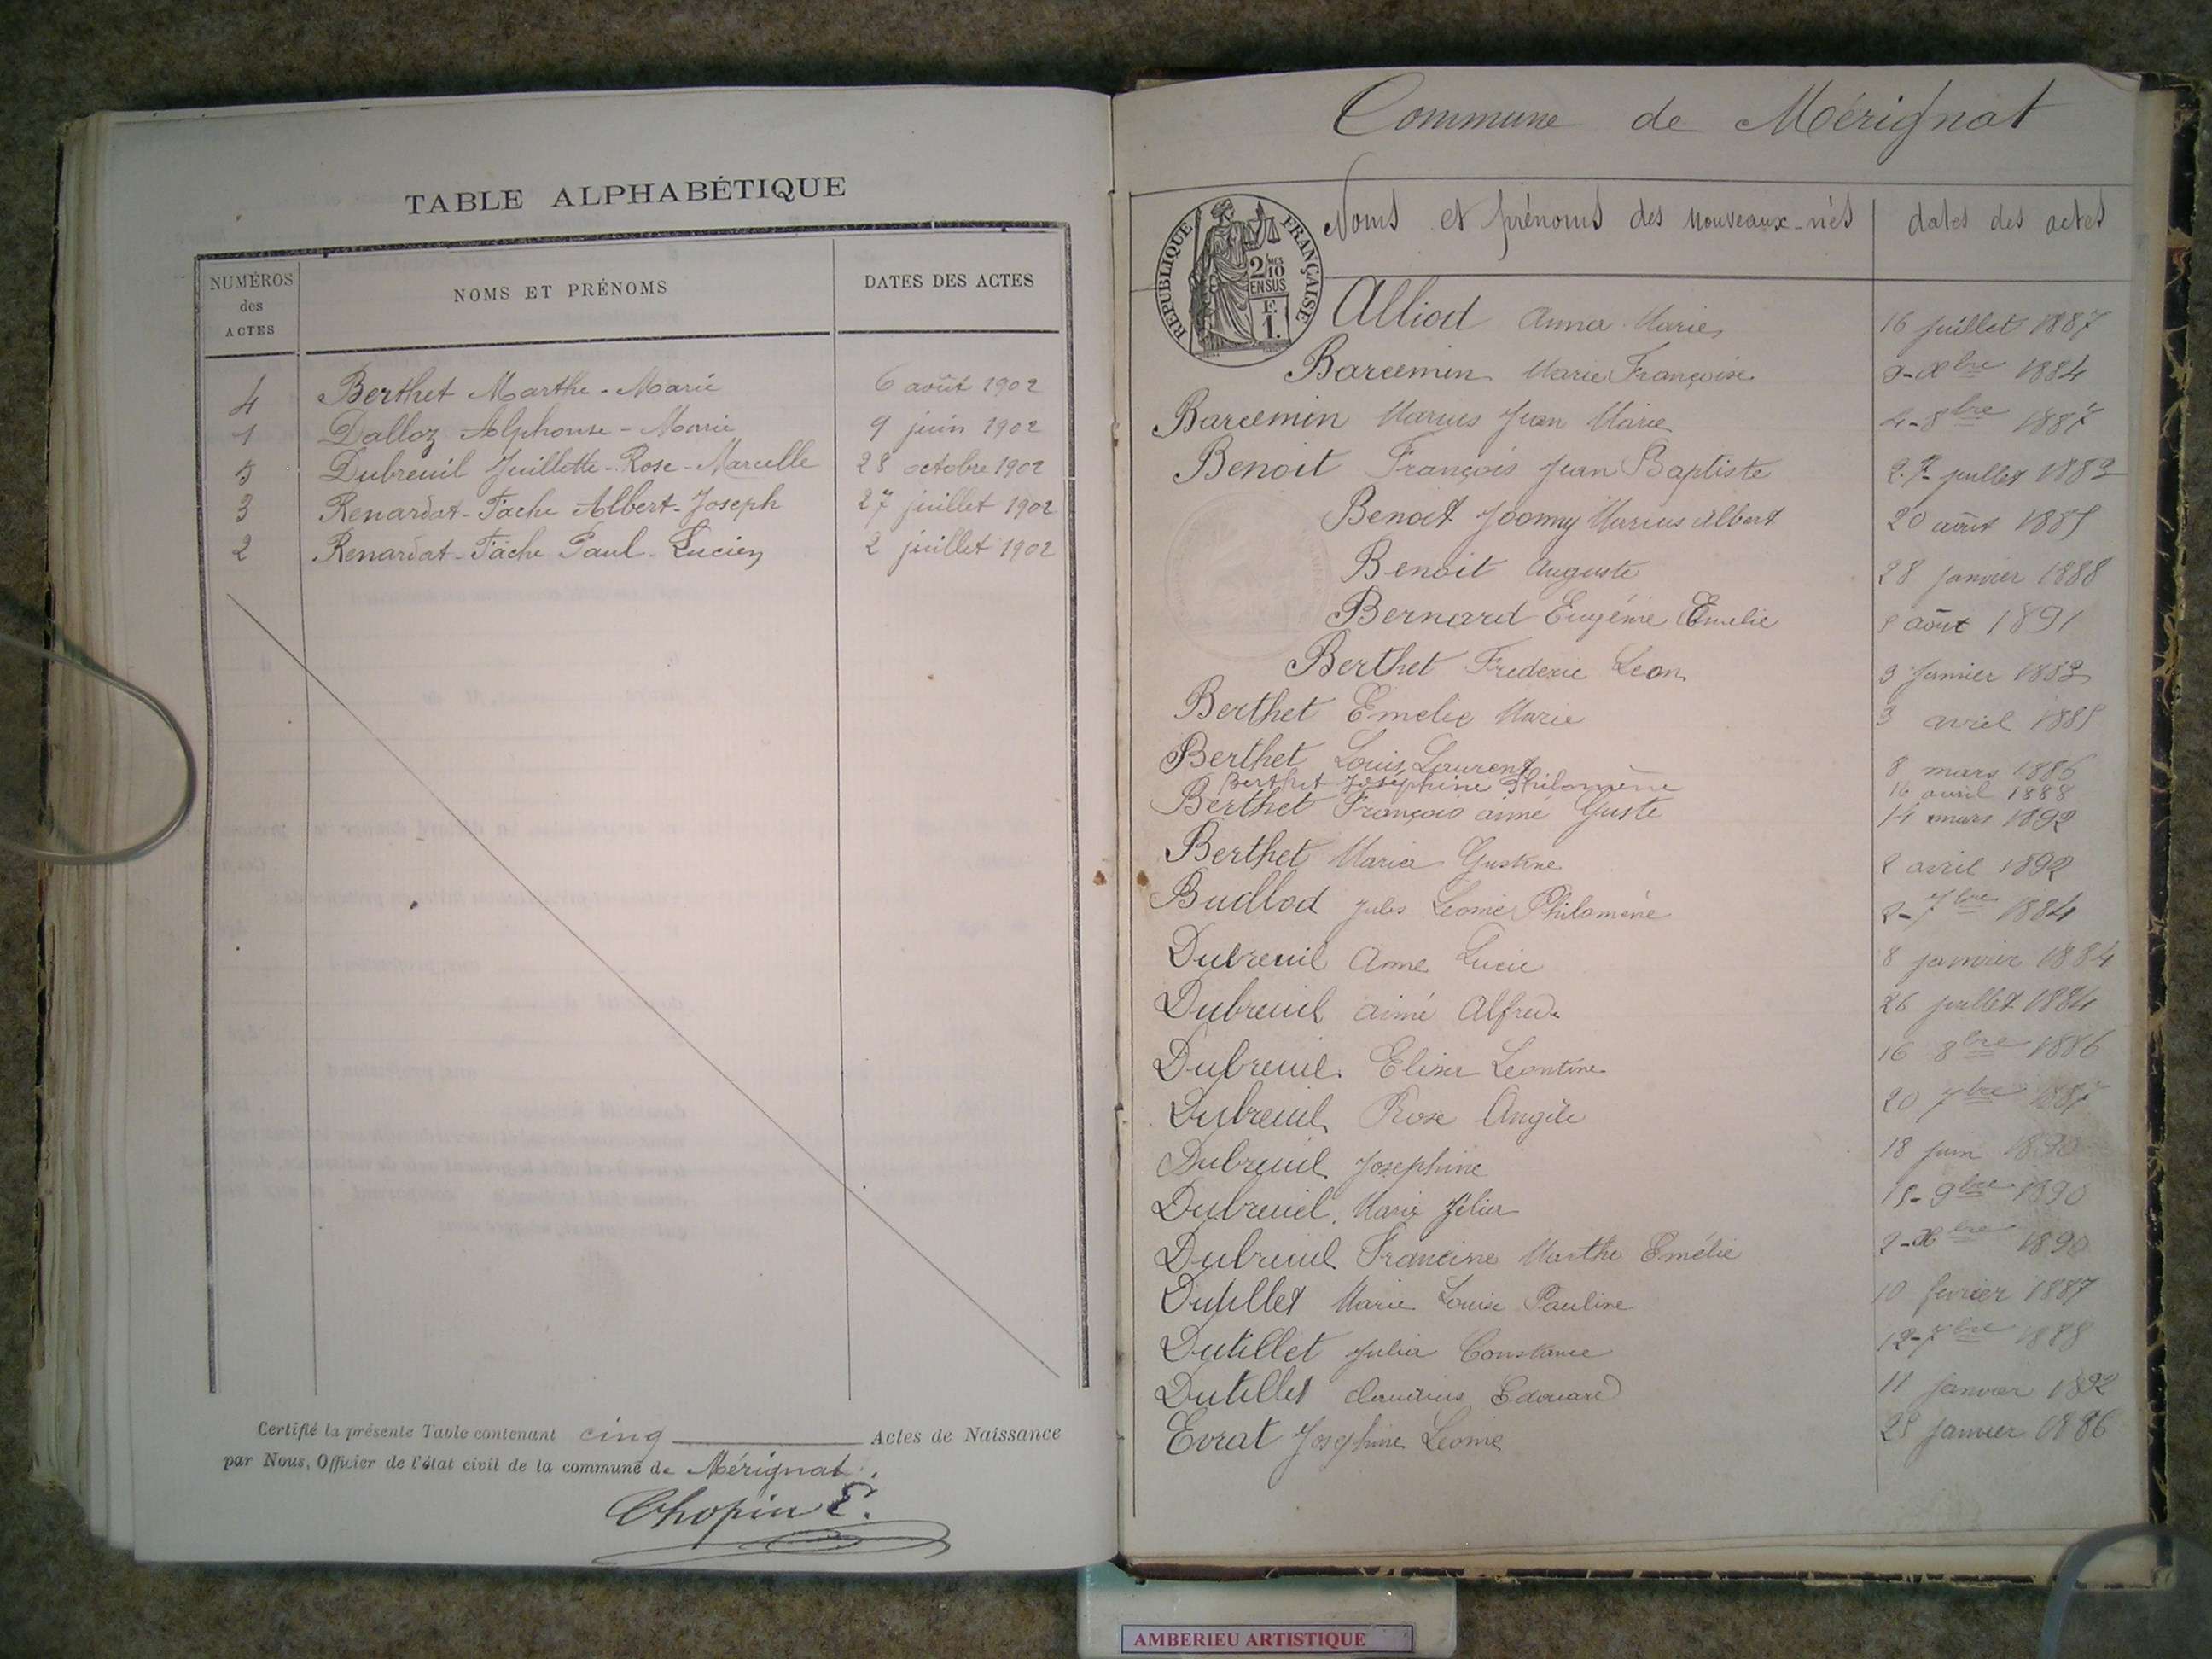 TABLE ALPHABÉTIQUE
NUMÉROS des ACTES NOMS ET PRÉNOMS DATES DES ACTES
4 Berthet Marthe-Marie 6 août 1902
1 Dalloz Alphonse-Marie 9 juin 1902
5 Dubreuil Juillette-Rose-Marcelle 28 octobre 1902
3 Renardat-Fache Albert-Joseph 27 juillet 1902
2 Renardat-Fache Paul-Lucien 2 juillet 1902
Certifié la présente Table contenant cinq Actes de Naissance
par Nous, Officier de l'état civil de la commune de Mérignat.
Chopin E.
Commune de Mérignat
Noms et prénoms des nouveaux-nés dates des actes
RÉPUBLIQUE FRANÇAISE
2/10 MES
EN SUS
F.
1.
Alliod Anna Marie 16 juillet 1887
Barcemin Marie Françoise bre 1884
Barcemin Marius Jean Marie 4-8bre 1887
Benoit François Jean Baptiste juillet 1883
Benoit Joanny Marius Albert 20 août 1885
Benoit Auguste 28 janvier 1888
Bernard Eugénie Emelie août 1891
Berthet Frederic Leon 3 janvier 1883
Berthet Emelie Marie 3 avril 1885
Berthet Louis Laurent 8 mars 1886
Berthet Joséphine Philomène 16 avril 1888
Berthet François aimé Guste 14 mars 1892
Berthet Maria 2 avril 1892
Budllod Jules Leonie Philomène 2-7bre 1884
Dubreuil Anne Lucie 8 janvier 1884
Dubreuil aimé Alfred 26 juillet 1884
Dubreuil Elisa Leontine 16 8bre 1886
Dubreuil Rose Angèle 20 7bre 1887
Dubreuil Josephine 18 juin 1890
Dubreuil Marie Félix 15-9bre 1890
Dubreuil Francine Marthe Emélie 2-Xbre 1890
Dutillet Marie Louise Pauline 10 fevrier 1887
Dutillet Julia Constance 12-7bre 1888
Dutillet Claudius Edouard 11 janvier 1892
Evrat Josephine Leonie 25 janvier 1886
AMBERIEU ARTISTIQUE